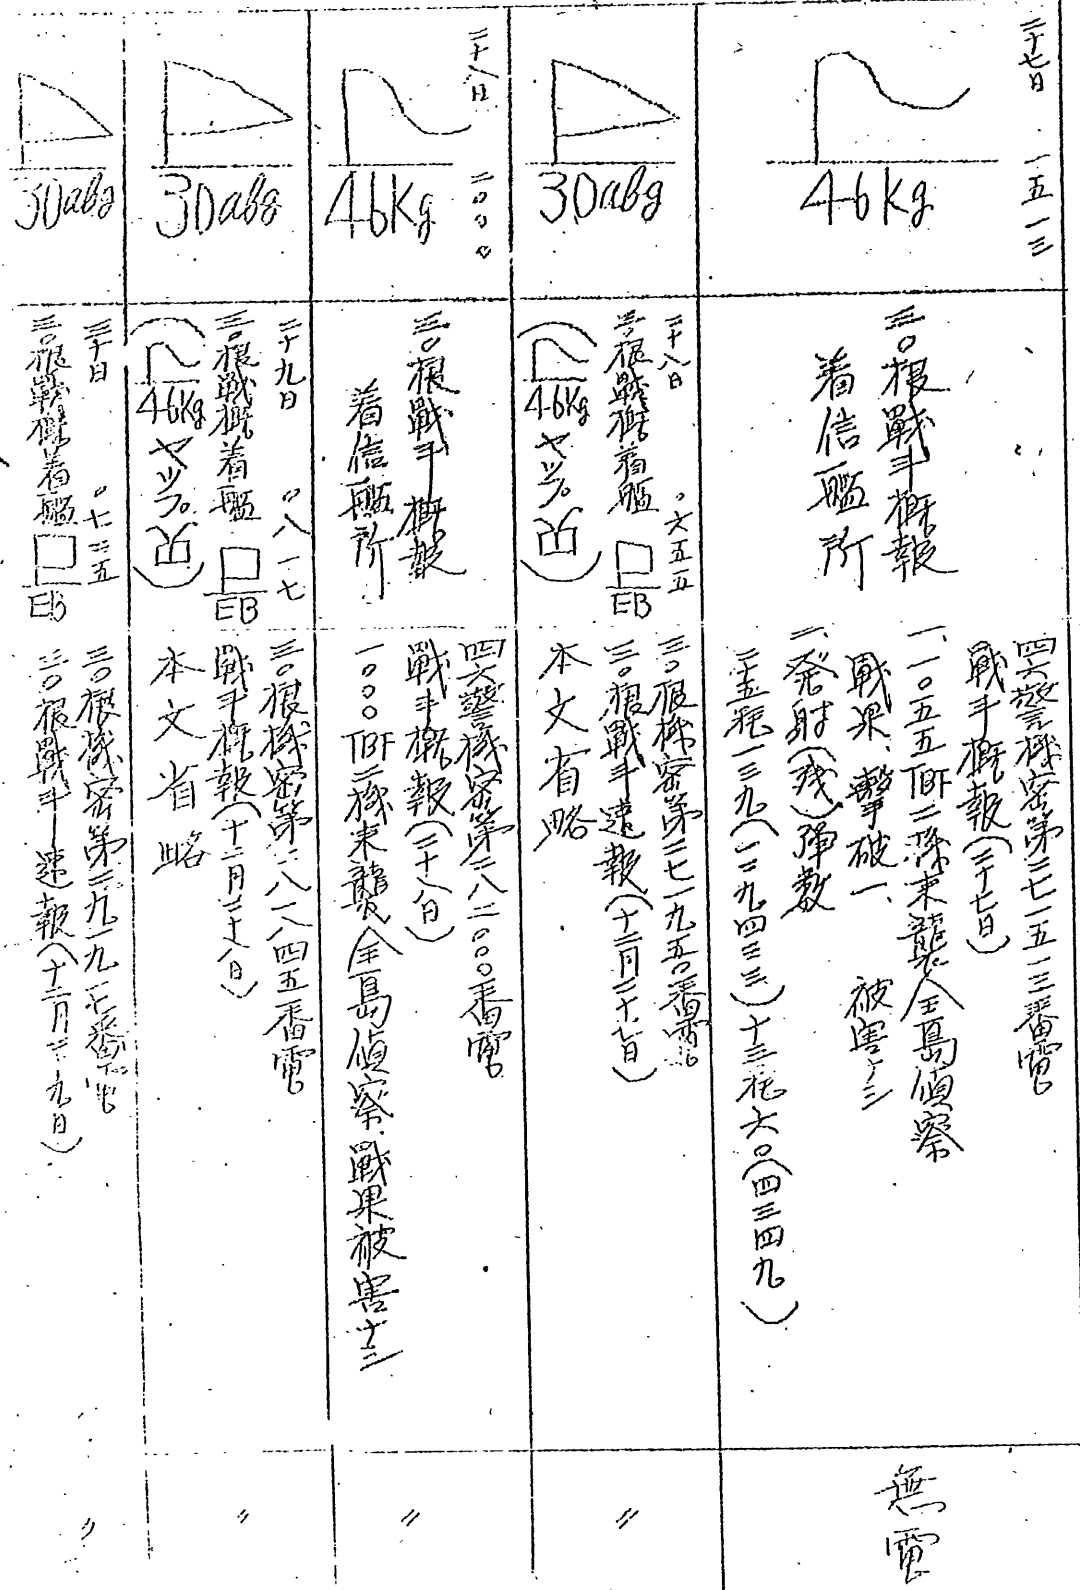 二十七日 一五一三
46Kg
三〇根戰斗概報
着信艦所
四六警機密第二七一五一三番電
戰斗概報(二十七日)
一、一〇五五TBF二隊来襲全島偵察
戰果、撃破一、 被害ナシ
二、発射(残)弾数
二十五粍一三九(一二九四三三)十三粍六〇(四三四九)
無電
30abg
二十八日 〇六五五
三〇根戰概着艦
EB
(46Kgヤップ所)
三〇根機密第二七一九五〇番電
三〇根戰斗速報(十二月二十七日)
本文省略
〃
二十八日 二〇〇〇
46Kg
三〇根戰斗概報
着信艦所
四六警機密第二八二〇〇〇番電
戰斗概報(二十八日)
一〇〇〇TBF二機来襲全島偵察、戰果被害ナシ
〃
30abg
二十九日 〇八一七
三〇根戰概着艦
EB
(46Kgヤップ所)
三〇根機密第二八一八四五番電
戰斗概報(十二月二十八日)
本文省略
〃
30abg
三十日 〇七二五
三〇根戰概着艦
EB
三〇根機密第二九一九一七番電
三〇根戰斗速報(十二月二十九日)
〃